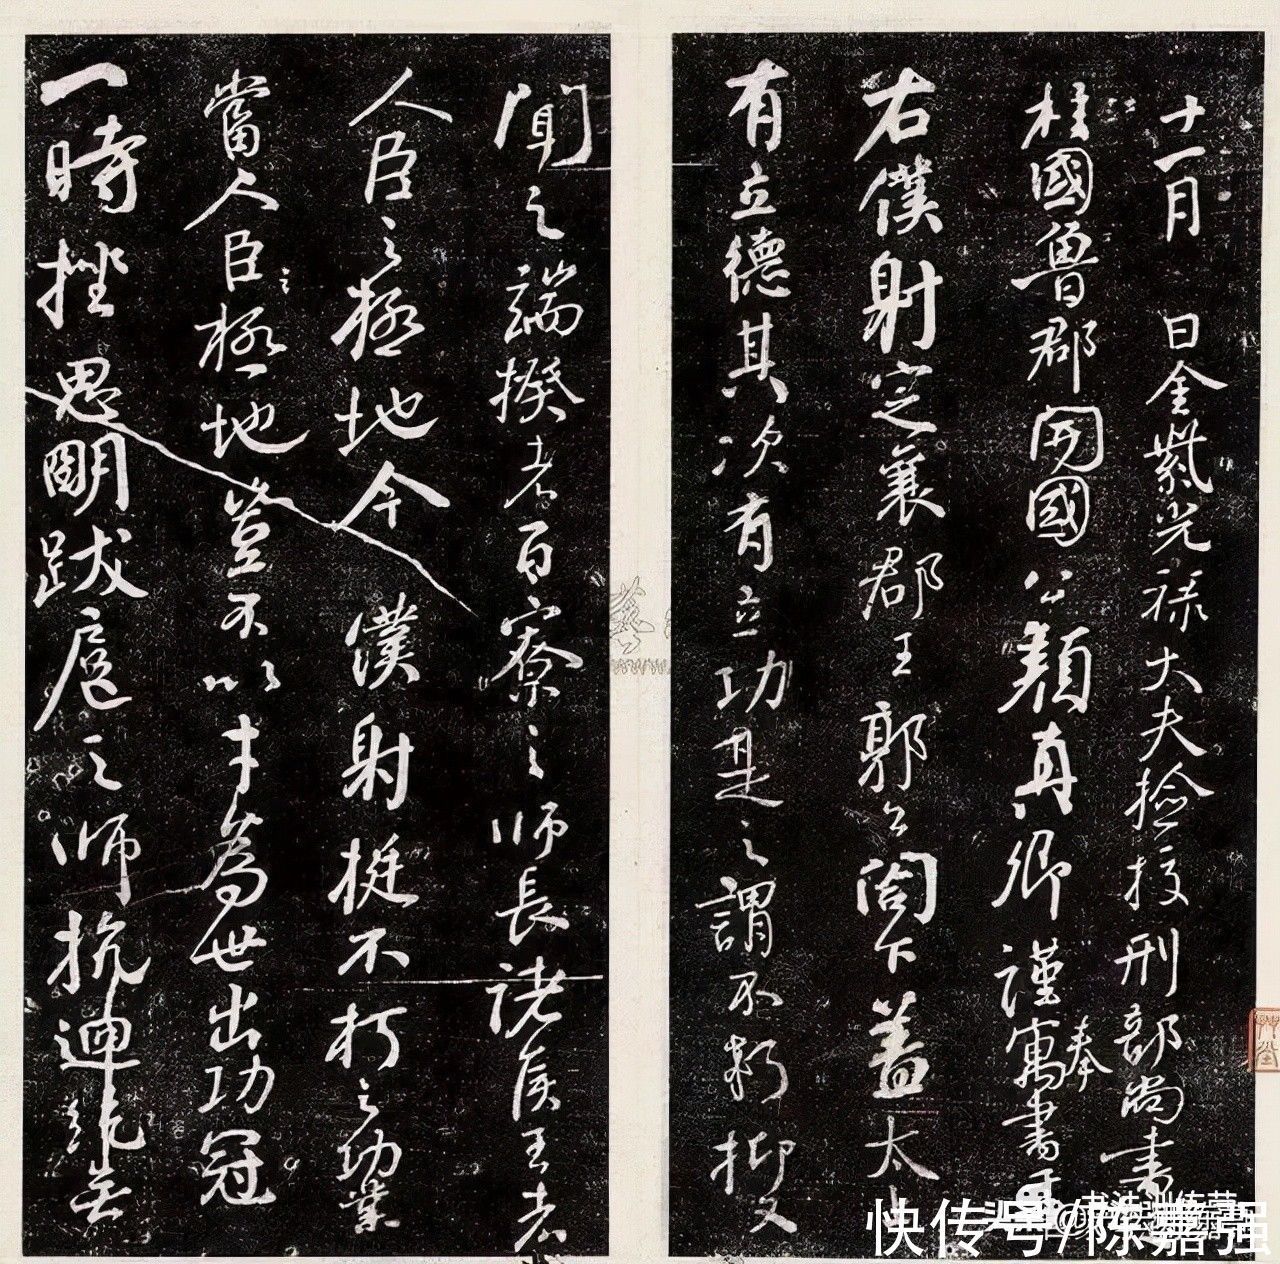 十一月日金紫光祿大夫撿挍刑部尚書
柱國魯郡開國公顏真卿謹寓奉書于
右僕射定襄郡王郭公閤下蓋太上
有立德其次有立功是之謂不朽抑又
聞之端揆者百寮之師長諸侯王者
人臣之極地今僕射挺不朽之功業
當人臣極地豈不以才為世出功冠
一時挫思明跋扈之師抗迴紇無
快传号/陈嘉强